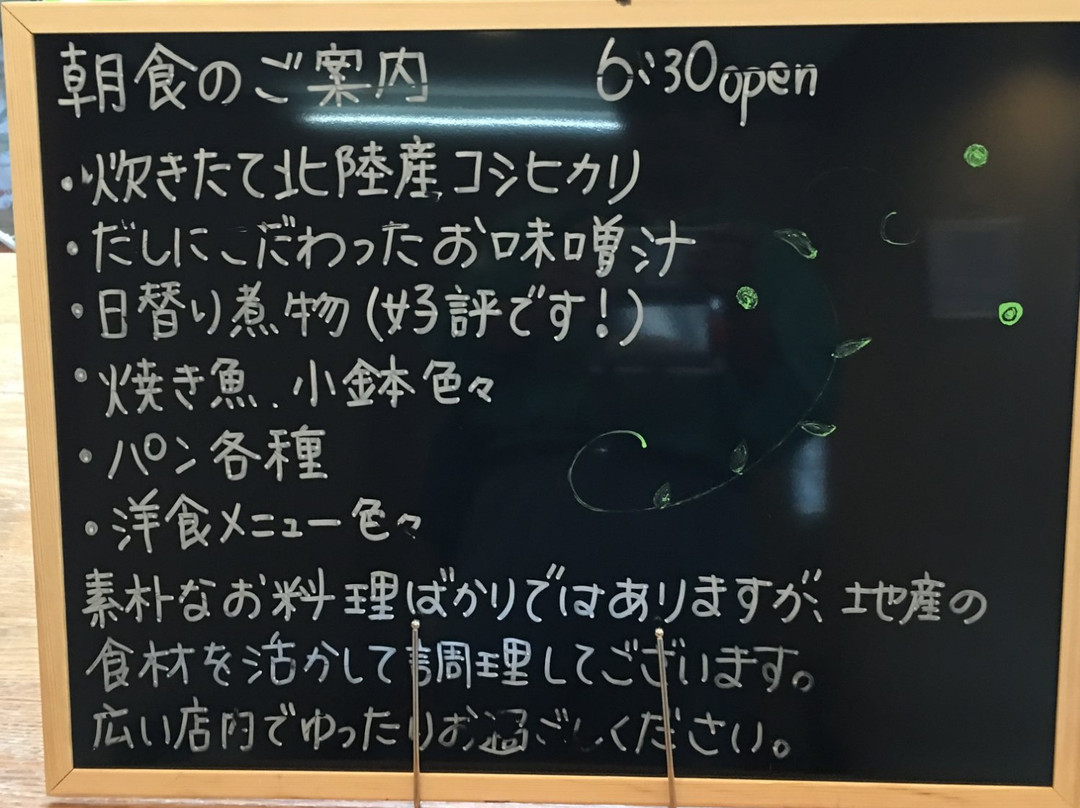 朝食のご案内 6:30 open
・炊きたて北陸産コシヒカリ
・だしにこだわったお味噌汁
・日替り煮物(好評です！)
・焼き魚、小鉢色々
・パン各種
・洋食メニュー色々
素朴なお料理ばかりではありますが、地産の
食材を活かして調理してございます。
広い店内でゆったりお過ごしください。